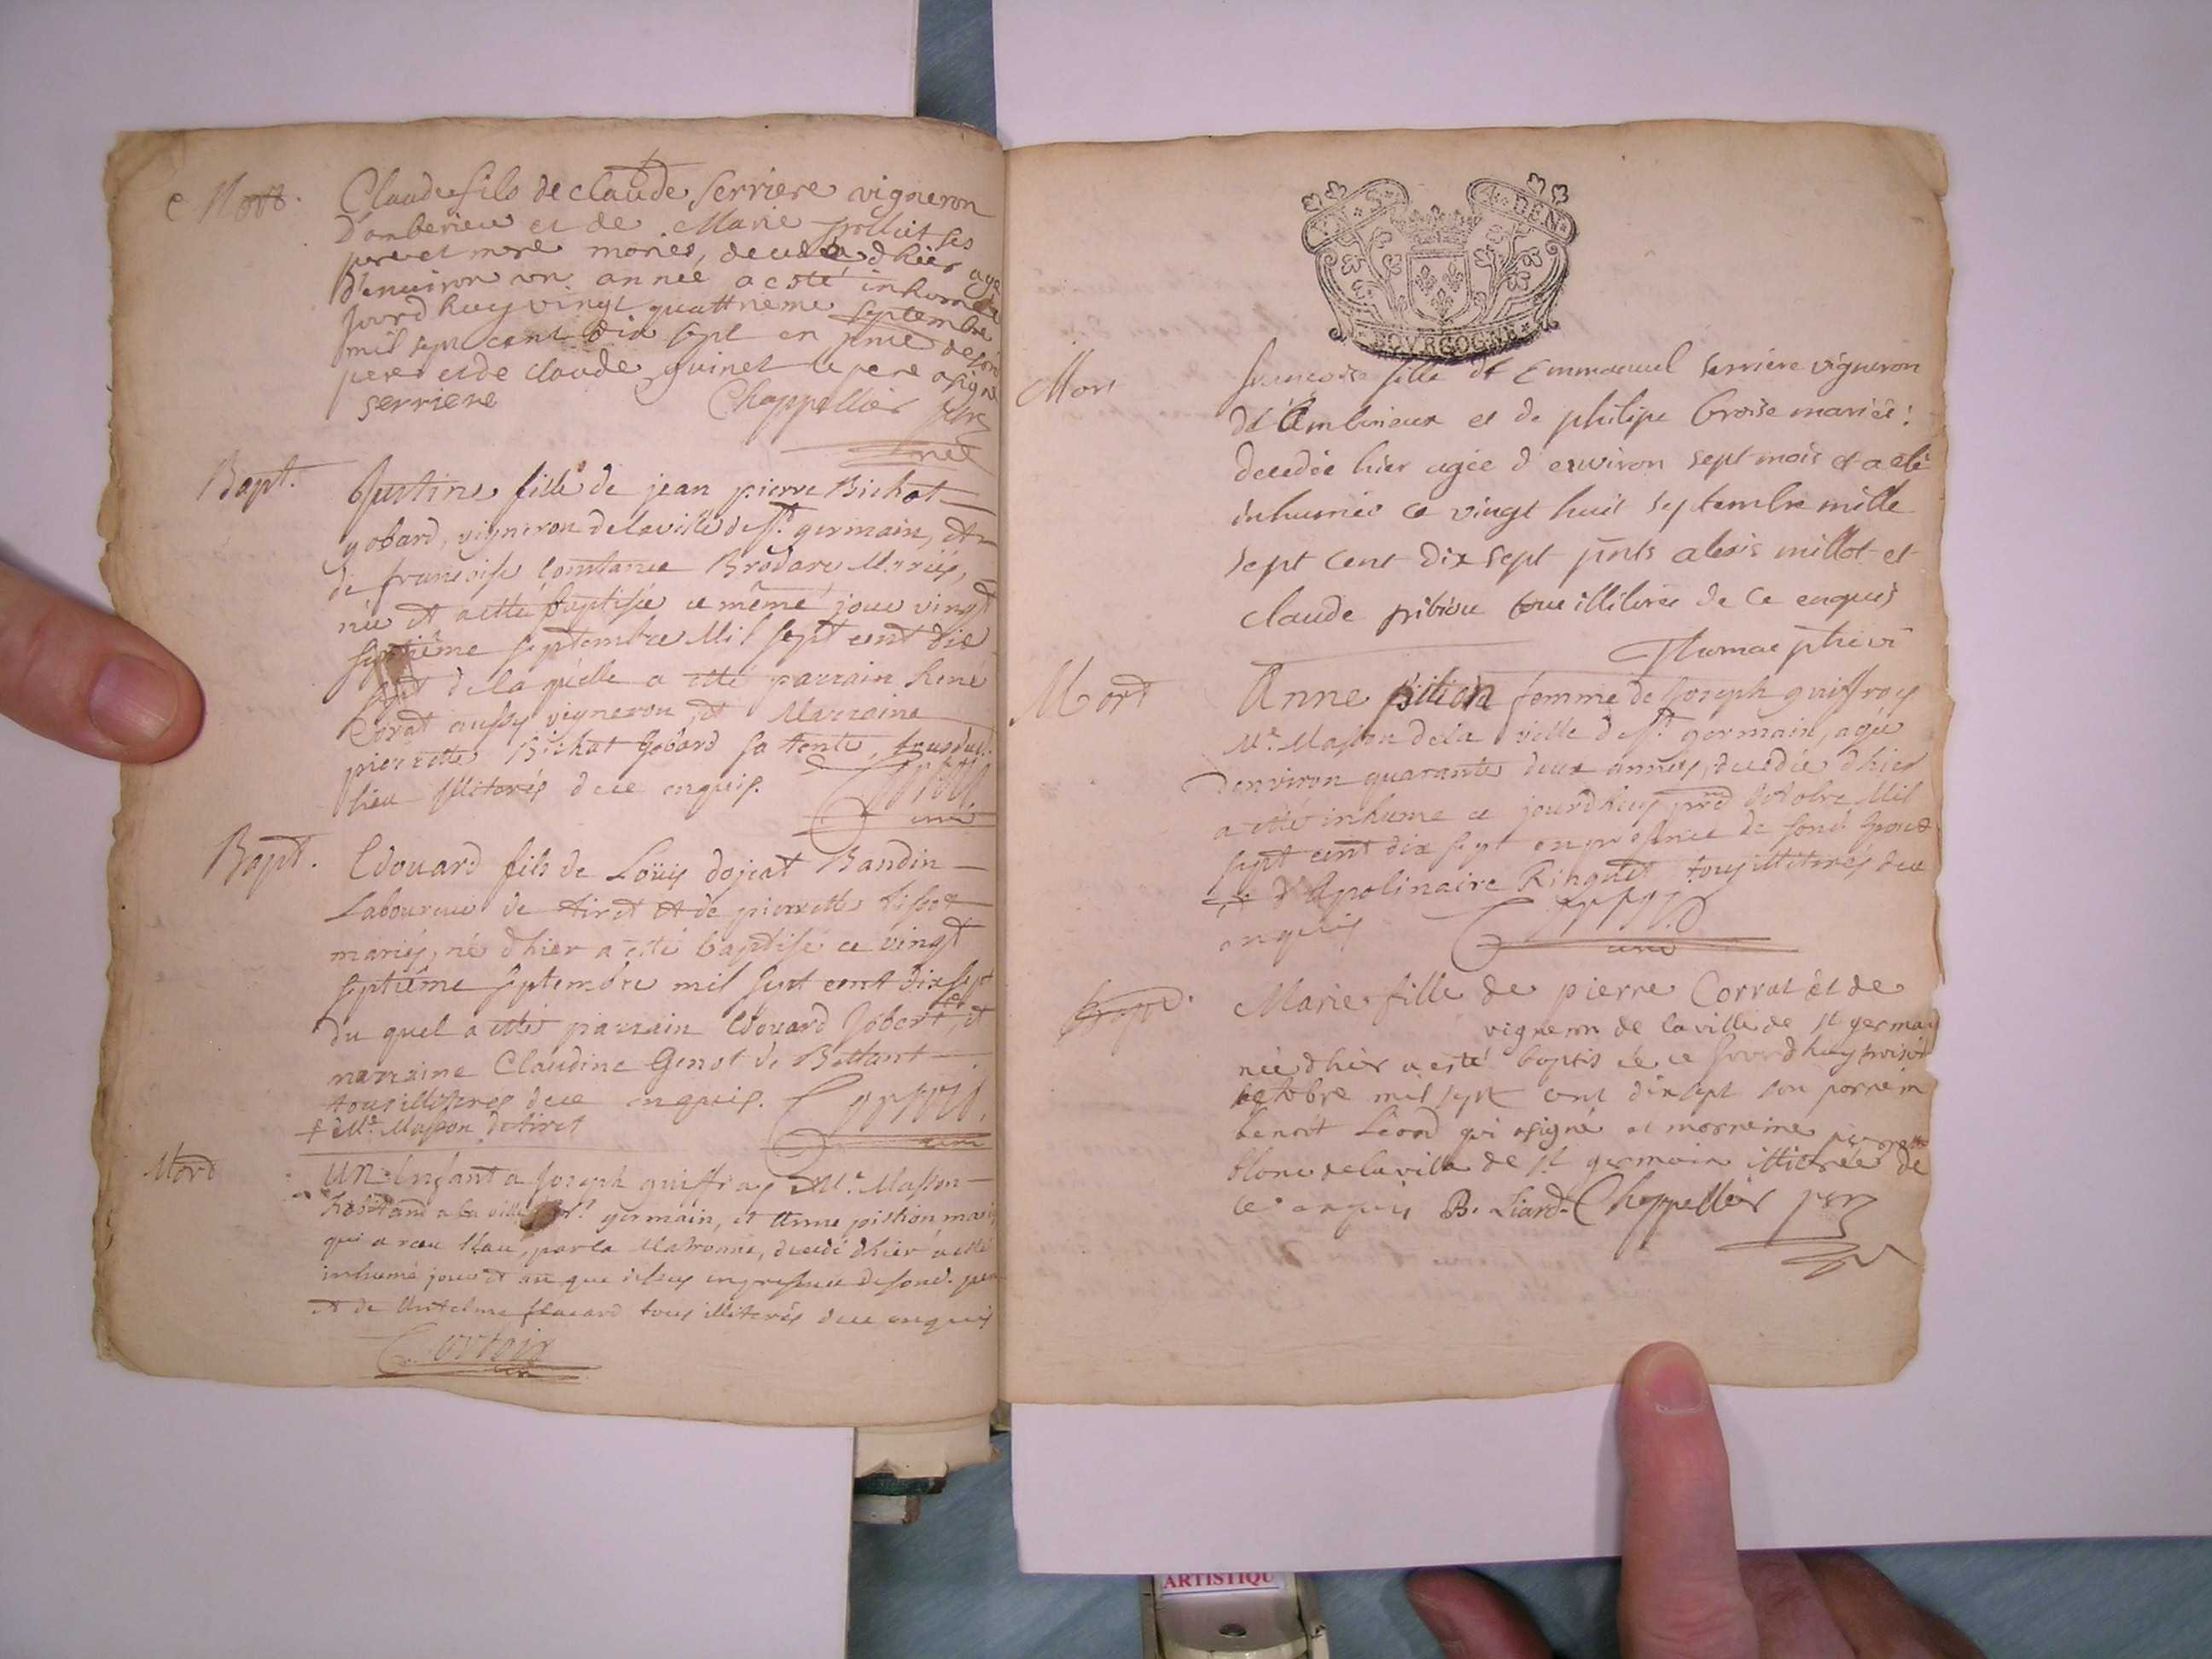 Mort.
Claude fils de claude Serriere vigneron
D'amberieu et de Marie pollict ses
pere et mere mariés, decedé dhier agé
D'environ un année a esté inhumé
jourdhuy vingt quattrieme septembre
mil sept cent dix sept en pnce de son
pere et de claude guinet le pere a signé
serriere Chappellier
Bapt.
Justine fille de jean pierre Bichat
gobard, vigneron de la ville de St. germain, et
de francoise Constance Brodare Mariés,
née et a etté baptisée ce même jour vingt
septiême septembre Mil sept cent dix
sept de la quelle a etté parrain René
Corat aussy vigneron et Marraine
pierrette Bichat Gobard sa tente, tous du
lieu illiterés de ce enquis.
Bapt.
Edouard fils de Loüis dojeat Bandin
Laboureur de tiret et de pierrette tissot
mariés, né dhier a etté baptisé ce vingt
septiême septembre mil sept cent dix sept
du quel a etté parrain Edouard Jobert, et
marraine Claudine Genot de Bettant
tous illiterés de ce enquis.
Me. Masson de tiret
Mord
Un Enfant a Joseph guiffray Me. Masson
habitand a la ville St. germain, et Anne pistion mariés
qui a receu l'eau, par la Matronne, decedé dhier a etté
inhumé jour et an que dessus en presence de sond. pere
et de Antelme flacard tous illiterés de ce enquis
Mort
francoise fille de Emmanuel serriere vigneron
de Amberieux et de philipe broise mariés:
decedée hier agée d'environ sept mois et a eté
inhumée ce vingt huit septembre mille
sept cent dix sept pnts alexis millot et
claude pibiou tous illiterés de ce enquis
Mort
Anne femme de Joseph guiffray
Me. Masson de la ville de St. germain, agée
d'environ quarante deux années, decedée dhier
a etté inhume ce jourdhuy octobre Mil
sept cent dix sept en presence de sond. epoux
et d'Apolinaire Ringuet tous illiterés de ce
enquis
Bapt.
Marie fille de pierre Corrat et de
vigneron de la ville de St germain
née dhier a esté baptisée ce jourdhuy troisie
octobre mil sept cent dix sept son parrein
benoit Léard qui a signé et marreine pierrette
blanc de la ville de St germain illiterée de
ce enquis B. Liard Chappellier
BOVRGOGNE
ARTISTIQU